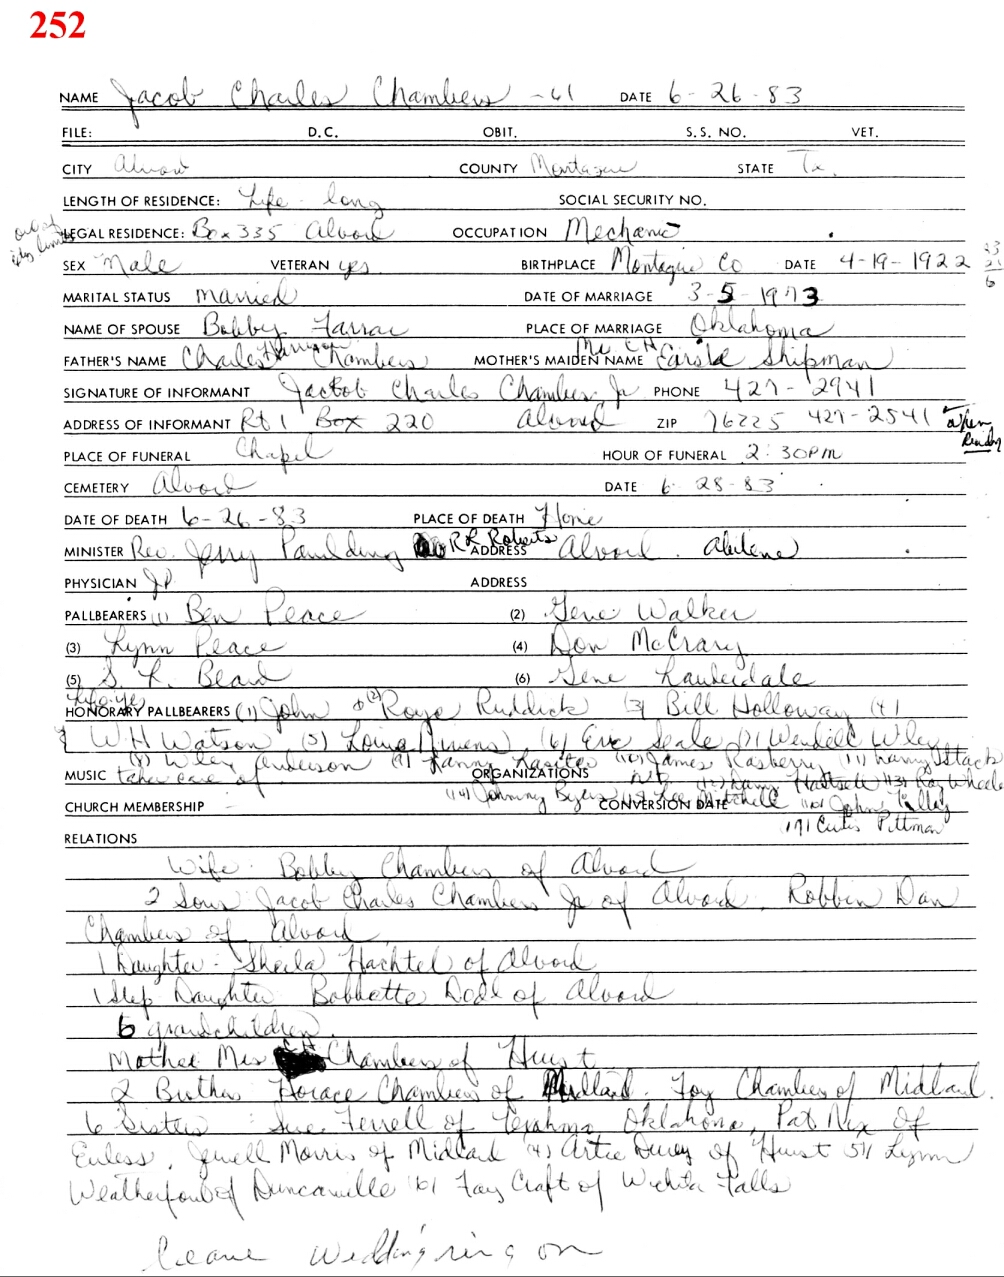 252
NAME Jacob Charles Chambers - 61 DATE 6-26-83
FILE: D.C. OBIT. S.S. NO. VET.
CITY Alvord COUNTY Montague STATE Tx.
LENGTH OF RESIDENCE: Life-long SOCIAL SECURITY NO.
out of city limits
LEGAL RESIDENCE: Box 335 Alvord OCCUPATION Mechanic
SEX Male VETERAN yes BIRTHPLACE Montague Co DATE 4-19-1922
MARITAL STATUS Married DATE OF MARRIAGE 3-5-1973
NAME OF SPOUSE Bobby Farrar PLACE OF MARRIAGE Oklahoma
FATHER'S NAME Charles Harrison Chambers MOTHER'S MAIDEN NAME Mrs CH Shipman
SIGNATURE OF INFORMANT Jacob Charles Chambers Jr PHONE 427-2941
ADDRESS OF INFORMANT Rt 1 Box 220 Alvord ZIP 76225 427-2541 When Ready
PLACE OF FUNERAL Chapel HOUR OF FUNERAL 2:30PM
CEMETERY Alvord DATE 6-28-83
DATE OF DEATH 6-26-83 PLACE OF DEATH Home
MINISTER Rev. Jerry Paulding RR Roberts ADDRESS Alvord. Abilene
PHYSICIAN JP ADDRESS
PALLBEARERS (1) Ben Peace (2) Gene Walker
(3) Lynn Peace (4) Don McCrary
(5) S. L. Beard (6) Gene Lauderdale
HONORARY PALLBEARERS (1) John & (2) Roye Ruddick (3) Bill Holloway (4)
W H Watson (5) Louie Givens (6) Eric Seale (7) Wendell Wiley
(8) Wiley Anderson (9) Lanny Lasiter (10) James Rasberry (11) Lanny Stack
MUSIC taken care of ORGANIZATIONS (12) Danny Hartsell (13) Ray Wheele
(14) Johnny Byers (15) Lee Mitchell (16) John Talley
CHURCH MEMBERSHIP CONVERSION DATE
(17) Curtis Pittman
RELATIONS
Wife: Bobby Chambers of Alvord
2 Sons Jacob Charles Chambers Jr of Alvord, Robbin Dan
Chambers of Alvord
1 Daughter: Sheila Hachtel of Alvord
1 Step Daughter Bobbette Dodd of Alvord
6 grandchildren
Mother Mrs CH Chambers of Hurst
2 Brothers Horace Chambers of Midland. Foy Chambers of Midland.
6 Sisters: Sue Ferrell of Texhoma, Oklahoma, Pat Nix of
Euless, Jewell Morris of Midland (4) Artie Durey of Hurst (5) Lynn
Weatherford of Duncanville (6) Fay Craft of Wichita Falls
leave wedding ring on